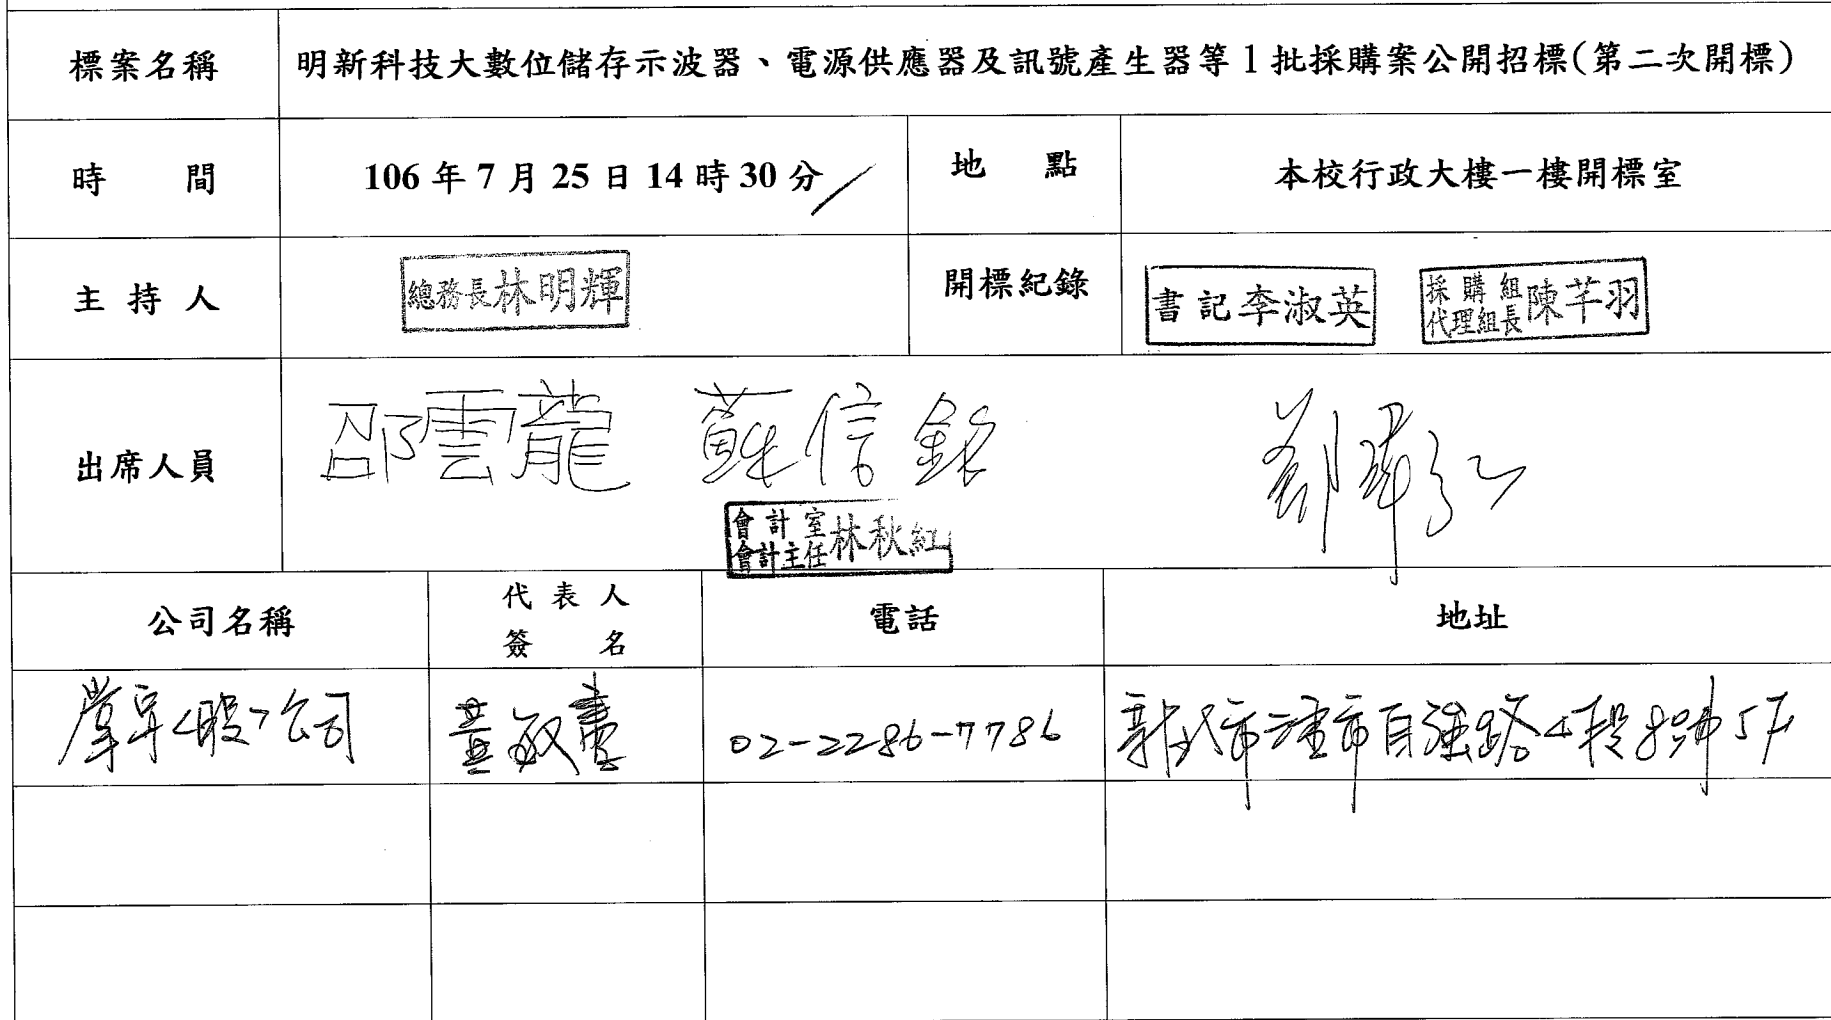 標案名稱 明新科技大數位儲存示波器、電源供應器及訊號產生器等1批採購案公開招標(第二次開標)
時 間 106 年 7 月 25 日 14 時 30 分 地 點 本校行政大樓一樓開標室
主 持 人 總務長林明輝 開標紀錄 書記李淑英 採購組代理組長陳芊羽
出席人員 邵雲龍 蘇信銘
會計室會計主任林秋紅
公司名稱 代表人簽名 電話 地址
公司 黃敏 02-2286-7786 新北市三重市自強路4段8號5F